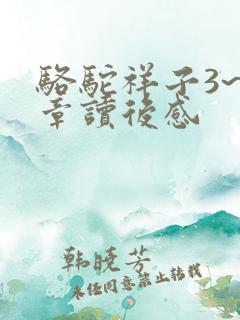 駱駝祥子3~
章讀後感
韩晓芳
未经同意禁止转载